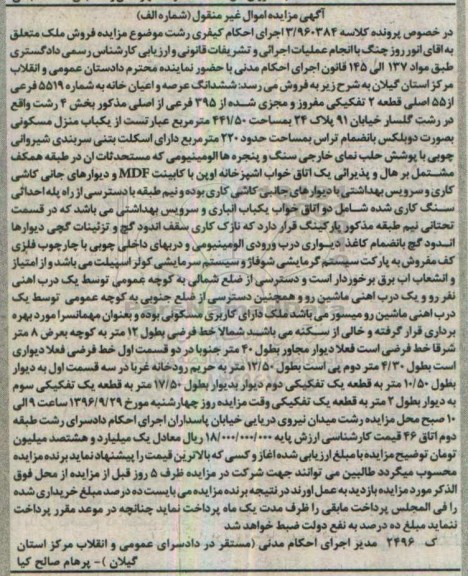 آگهی مزایده اموال غیر منقول (شماره الف)
در خصوص پرونده کلاسه ۳/۹۶۰۳۸۴ اجرای احکام کیفری رشت موضوع مزایده فروش ملک متعلق
به اقای انور روز چنگ با انجام عملیات اجرائی و تشریفات قانونی و ارزیابی کارشناس رسمی دادگستری
طبق مواد ۱۳۷ الی ۱۴۵ قانون اجرای احکام مدنی با حضور نماینده محترم دادستان عمومی و انقلاب
مرکز استان گیلان به شرح زیر به فروش می رسد: ششدانگ عرصه و اعیان خانه به شماره ۵۵۱۹ فرعی
از ۵۵ اصلی قطعه ۲ تفکیکی مفروز و مجزی شده از ۳۹۵ فرعی از اصلی مذکور بخش ۴ رشت واقع
در رشت گلسار خیابان ۹۱ پلاک ۲۴ بمساحت ۴۴۱/۵۰ مترمربع عبارتست از یکباب منزل مسکونی
بصورت دوبلکس بانضمام تراس بمساحت حدود ۲۲۰ مترمربع دارای اسکلت بتنی سربندی شیروانی
چوبی با پوشش حلب نمای خارجی سنگ و پنجره ها الومینیومی که مستحدثات ان در طبقه همکف
مشتمل بر هال و پذیرائی یک اتاق خواب اشپزخانه اوپن با کابینت MDF و دیوارهای جانبی کاشی
کاری و سرویس بهداشتی با دیوارهای جانبی کاشی کاری بوده و نیم طبقه با دسترسی از راه پله احداثی
سنگ کاری شده شامل دو اتاق خواب یکباب انباری و سرویس بهداشتی می باشد که در قسمت
تحتانی نیم طبقه مذکور پارکینگ قرار دارد که نازک کاری سقف اندود گچ و تزئینات گچی دیوارها
اندود گچ بانضمام کاغذ دیواری درب ورودی الومینیومی و دربهای داخلی چوبی با چارچوب فلزی
کف مفروش به پارکت سیستم گرمایشی شوفاژ و سیستم سرمایشی کولر اسپیلت می باشد و از امتیاز
و انشعاب اب برق برخوردار است و دسترسی از ضلع شمالی به کوچه عمومی توسط یک درب اهنی
نفر رو و یک درب اهنی ماشین رو و همچنین دسترسی از ضلع جنوبی به کوچه عمومی توسط یک
درب اهنی ماشین رو میسور می باشد ملک دارای کاربری مسکونی بوده و بعنوان مهمانسرا مورد بهره
برداری قرار گرفته و خالی از سکنه می باشد شمالا خط فرضی بطول ۱۲ متر به کوچه بعرض ۸ متر
شرقا خط فرضی است فعلا دیوار مجاور بطول ۴۰ متر جنوبا در دو قسمت اول خط فرضی فعلا دیواری
است بطول ۴/۳۰ متر دوم پی است بطول ۱۲/۵۰ به حریم رودخانه غربا در سه قسمت اول به دیوار
بطول ۱۰/۵۰ متر به قطعه یک تفکیکی دوم دیوار بدیوار بطول ۱۷/۵۰ متر به قطعه یک تفکیکی سوم
به دیوار بطول ۲ متر به قطعه یک تفکیکی وقت مزایده روز چهارشنبه مورخ ۱۳۹۶/۹/۲۹ ساعت ۹ الی
۱۰ صبح محل مزایده رشت میدان نیروی دریایی خیابان پاسداران اجرای احکام دادسرای رشت طبقه
دوم اتاق ۴۶ قیمت کارشناسی ارزش پایه ۱۸/۰۰۰/۰۰۰/۰۰۰ ریال معادل یک میلیارد و هشتصد میلیون
تومان توضیح مزایده با مبلغ ارزیابی شده اغاز و کسی که بالاترین قیمت را پیشنهاد نماید برنده مزایده
محسوب میگردد طالبین می توانند جهت شرکت در مزایده ظرف ۵ روز قبل از مزایده از محل فوق
الذکر مورد مزایده بازدید به عمل اورند در نتیجه برنده مزایده می بایست ده درصد مبلغ خریداری شده
را فی المجلس پرداخت مابقی را ظرف مدت یک ماه پرداخت نماید چنانچه در موعد مقرر پرداخت
ننماید مبلغ ده درصد به نفع دولت ضبط خواهد شد
ک ۲۴۹۶ مدیر اجرای احکام مدنی (مستقر در دادسرای عمومی و انقلاب مرکز استان
گیلان) - پرهام صالح کیا